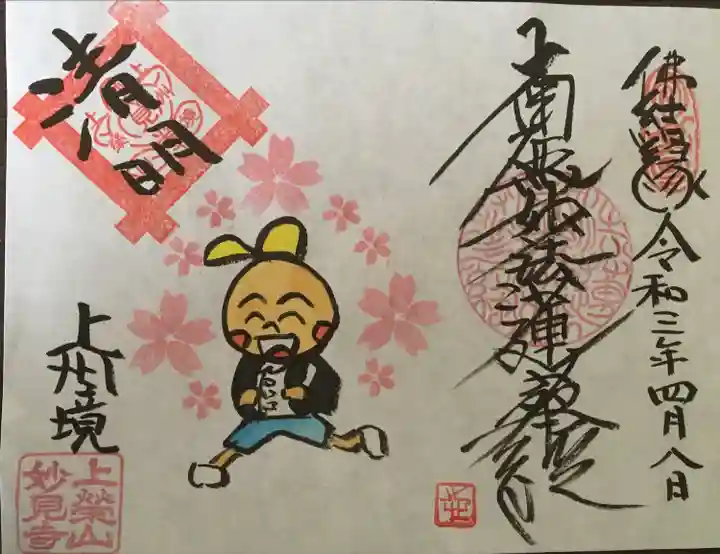 佛結縁
令和三年四月八日
南無妙法蓮華経
清明
上州境
上榮山
妙見寺